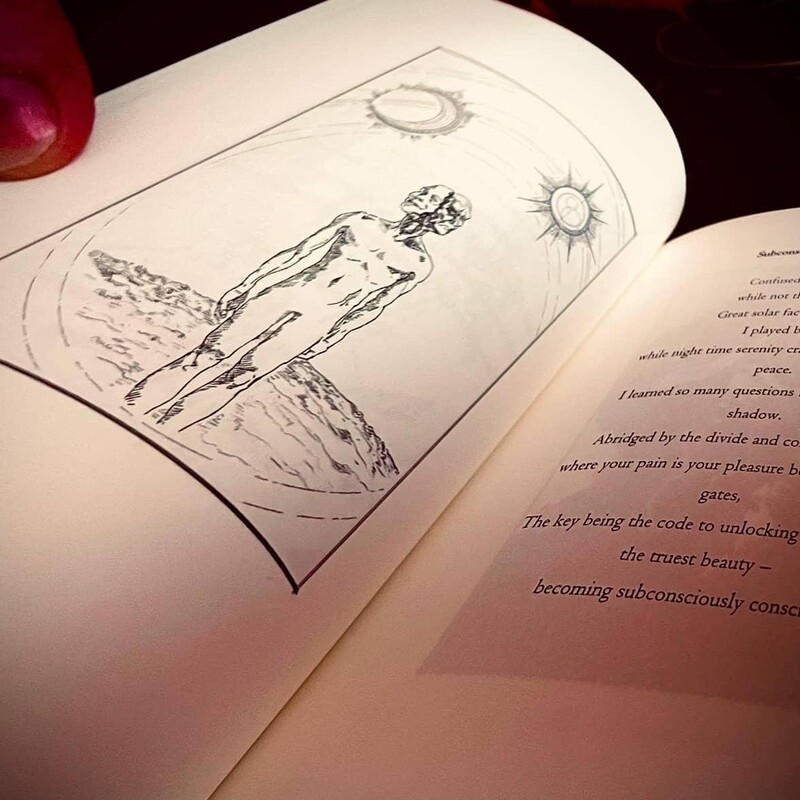 Confused
while not
Great solar
I played
while night time serenity
peace.
I learned so many questions
shadow.
Abridged by the divide and
where your pain is your pleasure
gates,
The key being the code to unlocking
the truest beauty –
becoming subconsciously